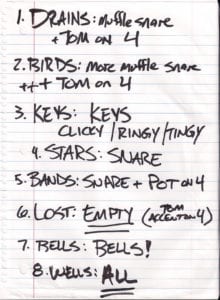 1. DRAINS: muffle snare
+ TOM ON 4
2. BIRDS: MORE muffle snare
++ + TOM ON 4
3. KEYS: KEYS
CLICKY / RINGY / TINGY
4. STARS: SNARE
5. BANDS: SNARE + POT ON 4
6. LOST: EMPTY (TOM ACCENT ON 4)
7. BELLS: BELLS!
8. WELLS: ALL